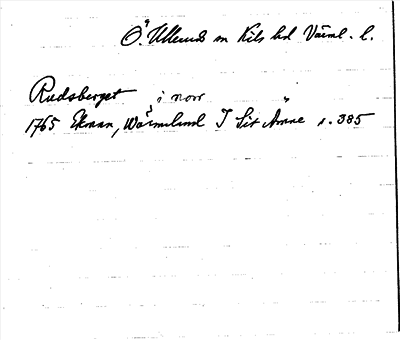 Ö. Ullerud sn Kils hd Värml. l.
Rudsberget i norr
1765 Ekman, Wärmland I Sit Ämne s. 385